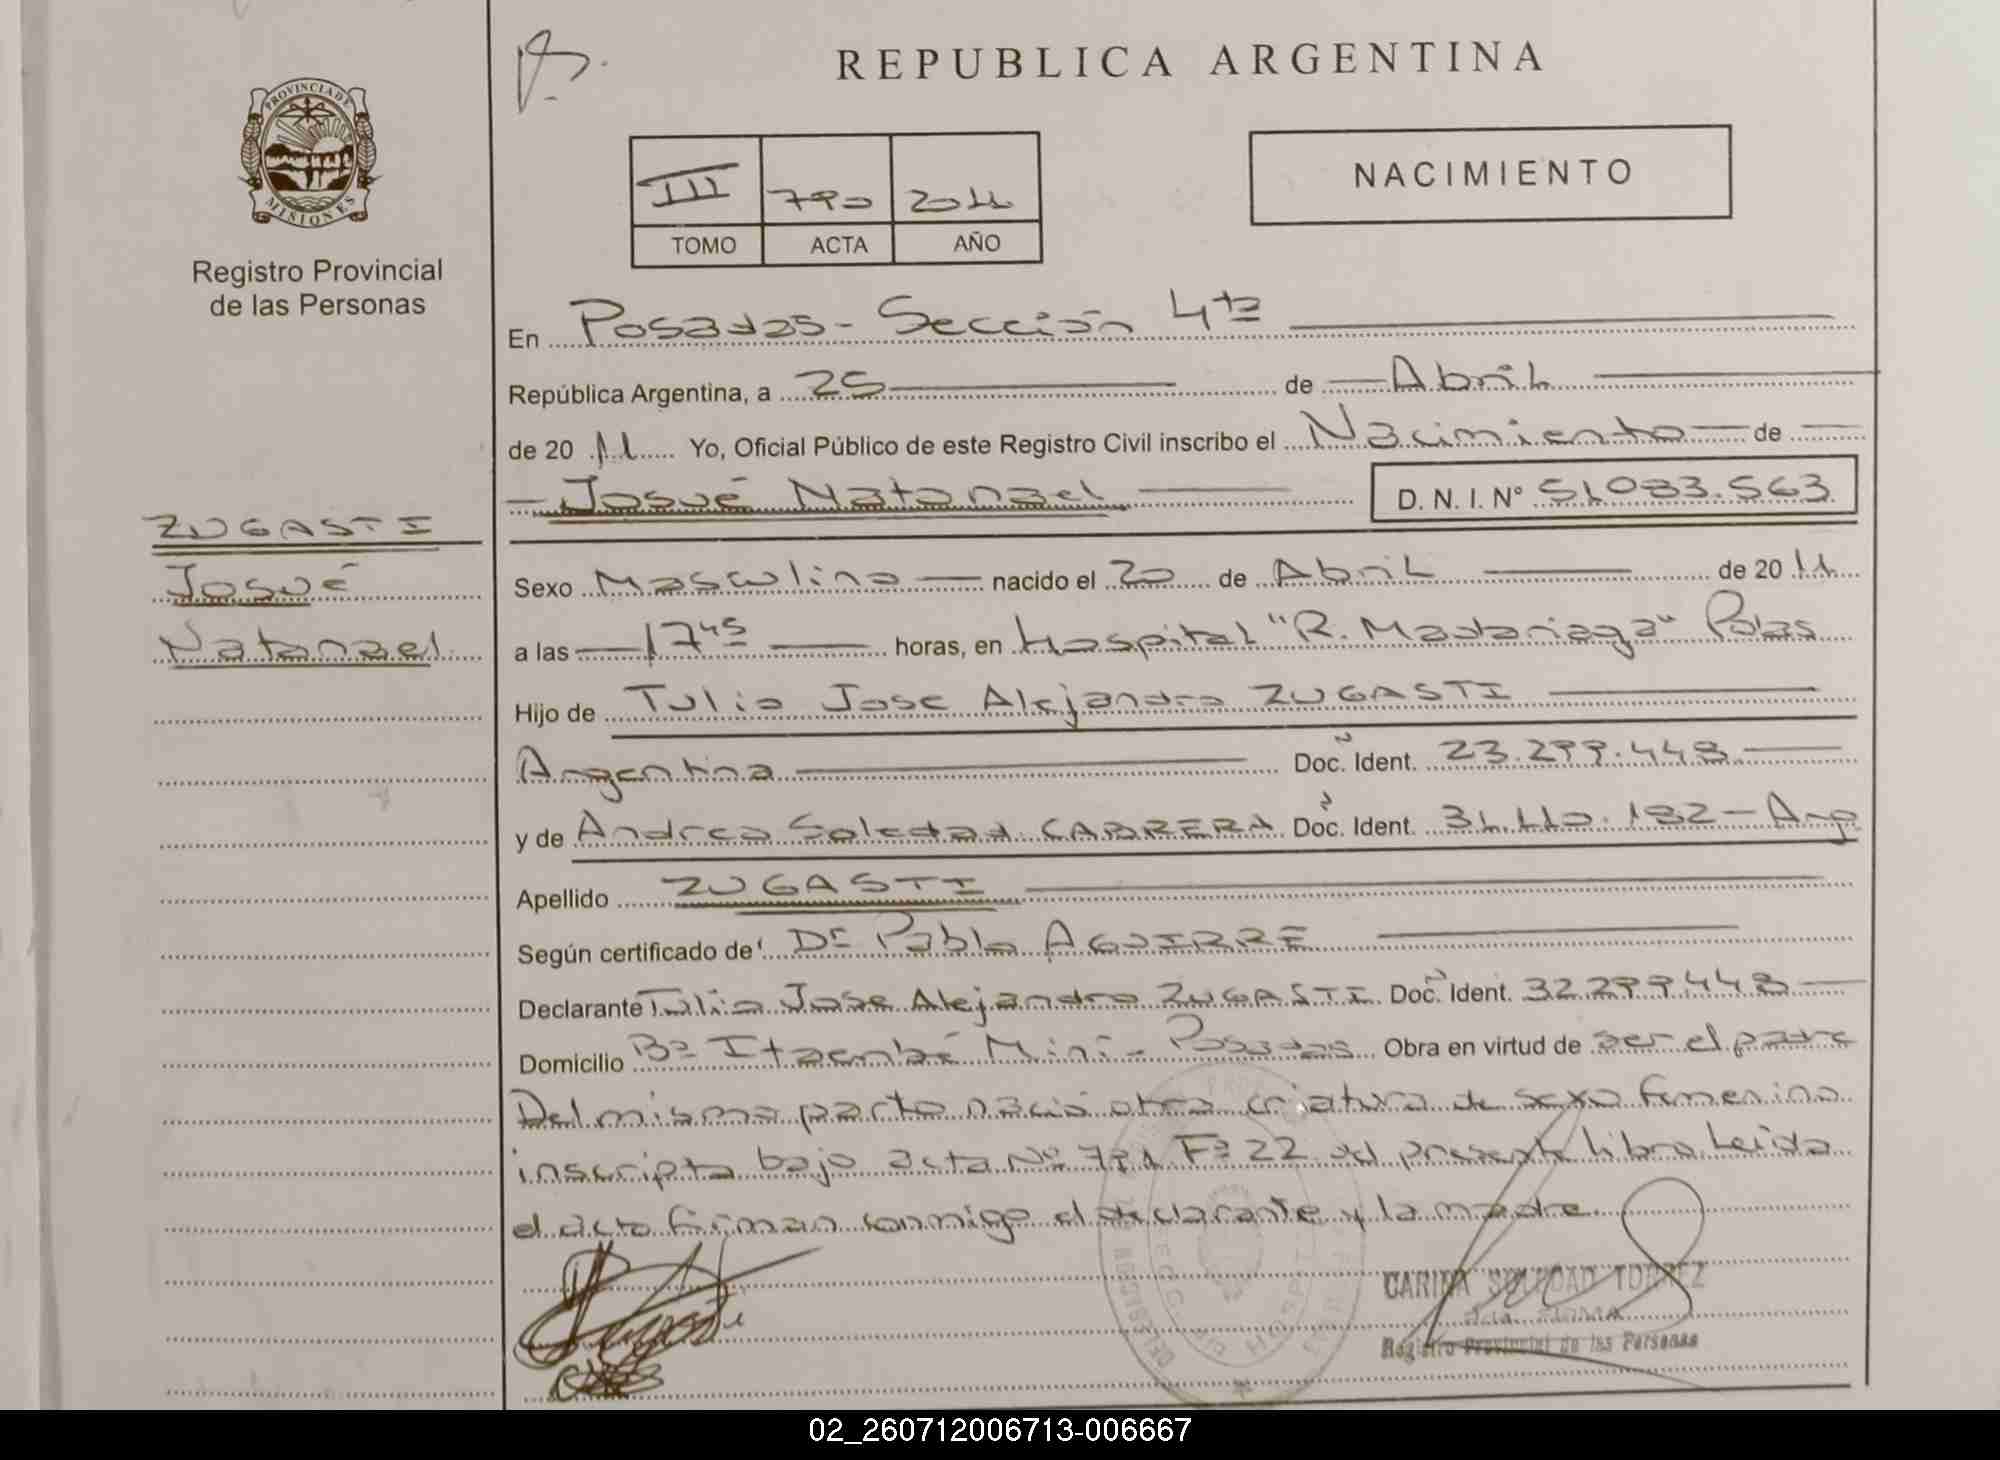 PROVINCIA DE
MISIONES
Registro Provincial
de las Personas
ZUGASTI
Josué
Natanael
REPUBLICA ARGENTINA
III 790 2011
TOMO ACTA AÑO
NACIMIENTO
En Posadas - Sección 4ta
República Argentina, a 25 de Abril
de 20 11 Yo, Oficial Público de este Registro Civil inscribo el Nacimiento de
Josué Natanael D. N. I. N° 51.083.563
Sexo Masculino nacido el 20 de Abril de 20 11
a las 17 45 horas, en Hospital "R. Madariaga" Pdas
Hijo de Tulio Jose Alejandro ZUGASTI
Argentina Doc. Ident. 23.299.448
y de Andrea Soledad CABRERA Doc. Ident. 31.110.182 - Arg
Apellido ZUGASTI
Según certificado de Dr Pablo AGUIRRE
Declarante Tulio Jose Alejandro ZUGASTI Doc. Ident. 32.299.448
Domicilio Bº Itaembé Miní - Posadas Obra en virtud de ser el padre
Del mismo parto nació otra criatura de sexo femenino
inscripta bajo acta Nº 791 Fº 22 del presente libro Leída
el acto firman conmigo el declarante y la madre
CARINA SOLEDAD TORREZ
Registro Provincial de las Personas
02_260712006713-006667